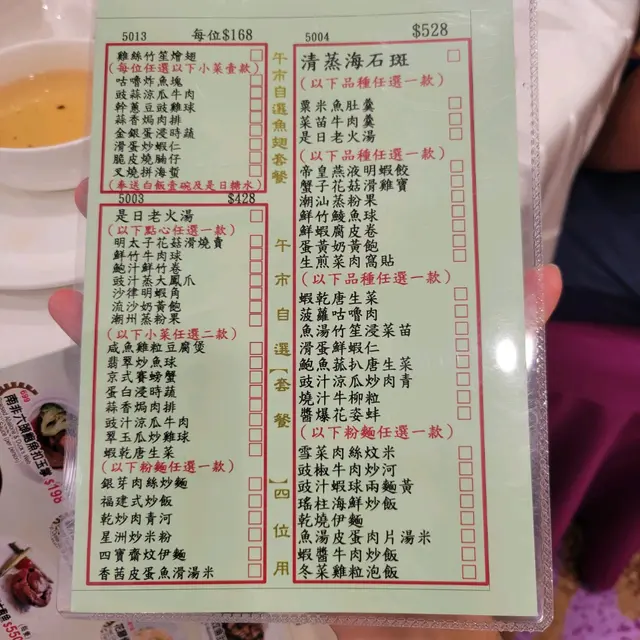 5013 每位$168
雞絲竹笙燴翅
(每位任選以下小菜壹款)
咕嚕炸魚塊
豉蒜涼瓜牛肉
幹蔥豆豉雞球
蒜香焗肉排
金銀蛋浸時蔬
滑蛋炒蝦仁
脆皮燒腩仔
叉燒拼海蜇
(奉送白飯壹碗及是日糖水)
5003 $428
是日老火湯
(以下點心任選一款)
明太子花菇滑燒賣
鮮竹牛肉球
鮑汁鮮竹卷
豉汁蒸大鳳爪
沙律明蝦角
流沙奶黃飽
潮州蒸粉果
(以下小菜任選二款)
咸魚雞粒豆腐煲
翡翠炒魚球
京式賽螃蟹
蛋白浸時蔬
蒜香焗肉排
豉汁涼瓜牛肉
翠玉瓜炒雞球
蝦乾唐生菜
(以下粉麵任選一款)
銀芽肉絲炒麵
福建式炒飯
乾炒肉青河
星洲炒米粉
四寶齋炆伊麵
香茜皮蛋魚滑湯米
午市自選魚翅套餐
午市自選【套餐】四位用
5004 $528
清蒸海石斑
(以下品種任選一款)
粟米魚肚羹
菜苗牛肉羹
是日老火湯
(以下品種任選一款)
帝皇燕液明蝦餃
蟹子花菇滑雞寶
潮汕蒸粉果
鮮竹鯪魚球
鮮蝦腐皮卷
蛋黃奶黃飽
生煎菜肉窩貼
(以下品種任選一款)
蝦乾唐生菜
菠蘿咕嚕肉
魚湯竹笙浸菜苗
滑蛋鮮蝦仁
鮑魚菰扒唐生菜
豉汁涼瓜炒肉青
燒汁牛柳粒
醬爆花姿蚌
(以下粉麵任選一款)
雪菜肉絲炆米
豉椒牛肉炒河
豉汁蝦球兩麵黃
瑤柱海鮮炒飯
乾燒伊麵
魚湯皮蛋肉片湯米
蝦醬牛肉炒飯
冬菜雞粒泡飯
$198
$550